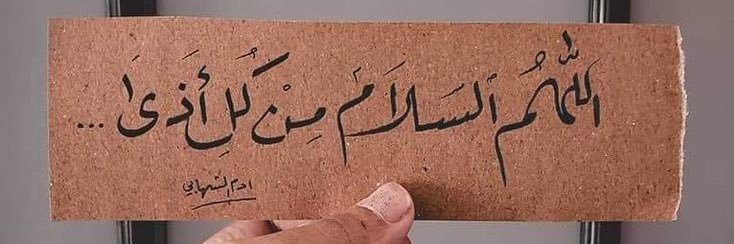 اللّٰهُم ٱلسَلَامَ مِنْ كُلِ أَذَىَ ...
ادم الشهابي